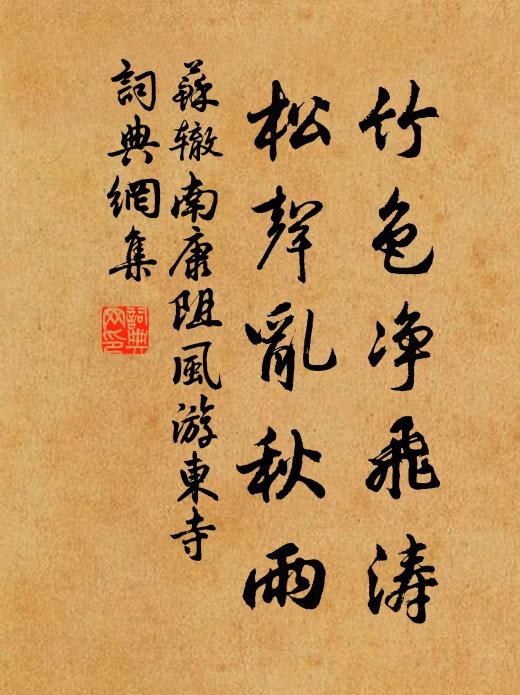 竹色净飛涛
松聲亂秋雨
蘇辙南康阻風游東寺
詞典網集
詞典網印